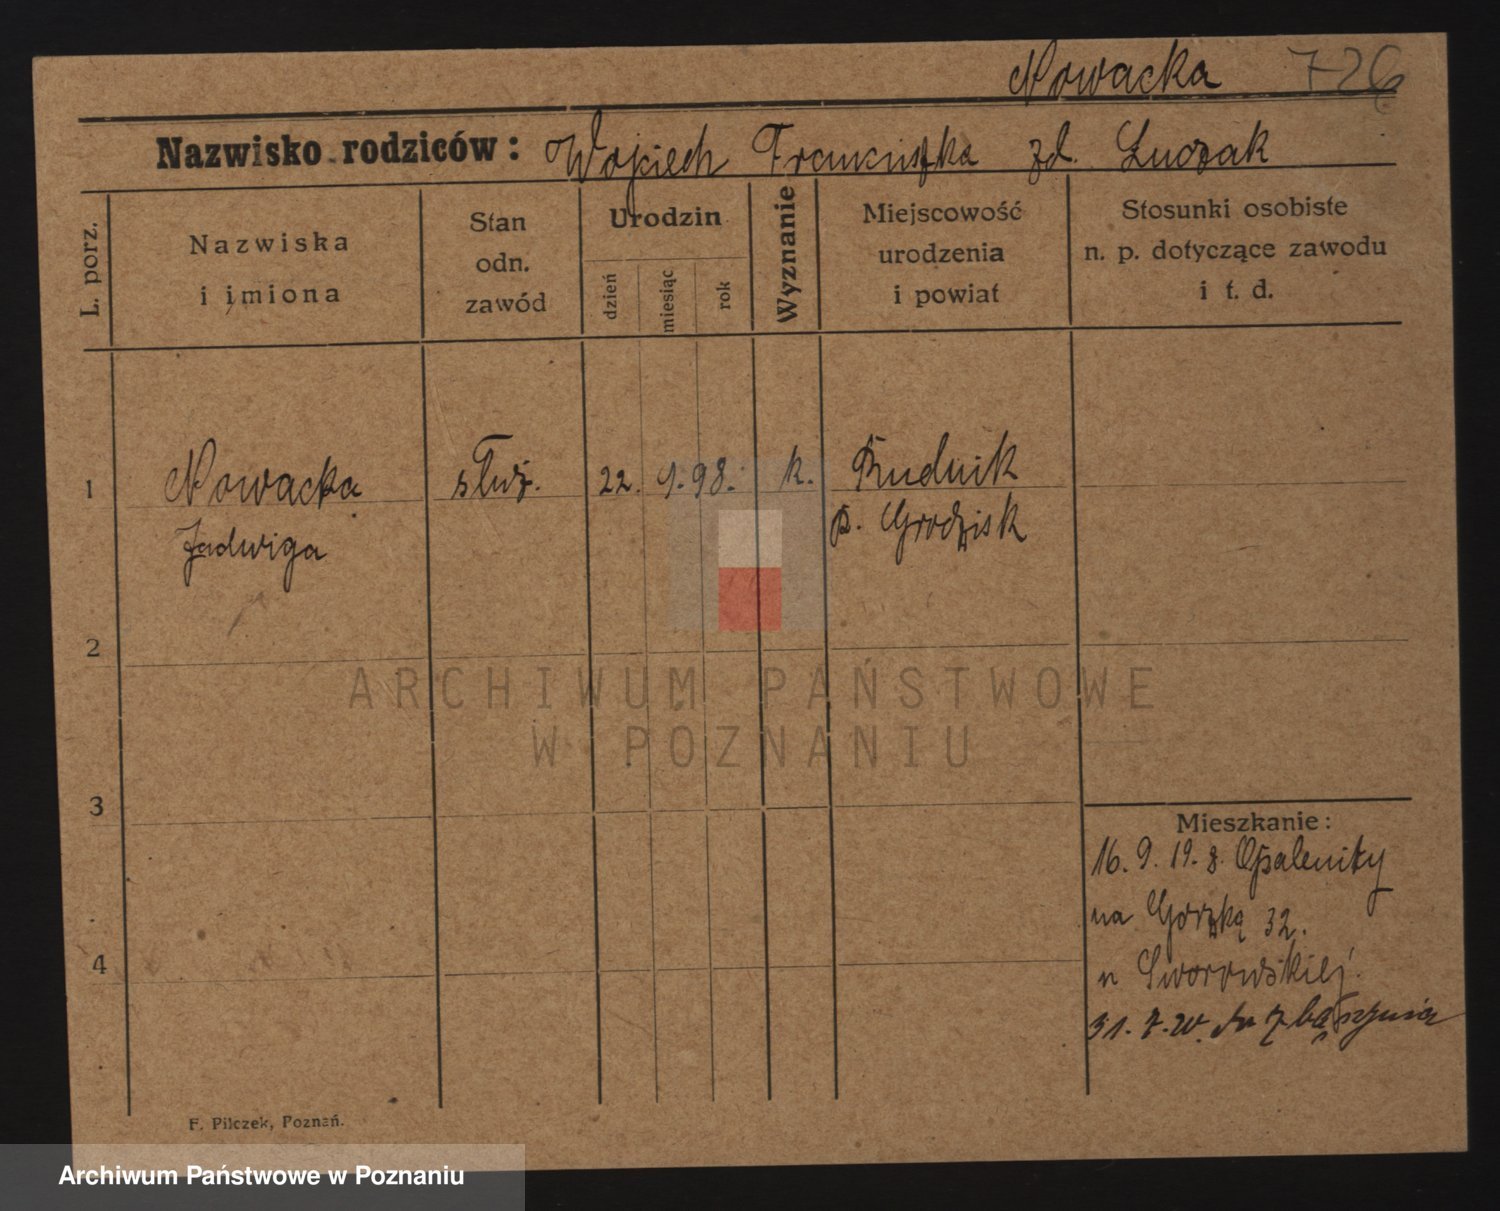 Nowacka 726
Nazwisko rodziców: Wojciech Franciszka zd. Łuczak
L. porz.
Nazwiska
i imiona
Stan
odn.
zawód
Urodzin
dzień
miesiąc
rok
Wyznanie
Miejscowość
urodzenia
i powiat
Stosunki osobiste
n. p. dotyczące zawodu
i t. d.
1 Nowacka służ. 22. 9. 98. k. Rudnik
Jadwiga p. Grodzisk
2
ARCHIWUM PAŃSTWOWE
W POZNANIU
3
Mieszkanie:
16. 9. 19. z Opalenicy
na Gorzką 32.
u Sworowskiej.
4
31. 7. 20. do Zbąszynia
F. Pilczek, Poznań.
Archiwum Państwowe w Poznaniu